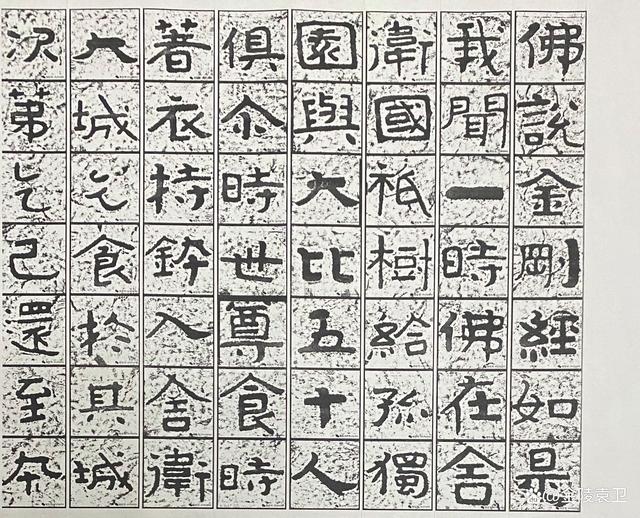 佛說金剛經如是
我聞一時佛在舍
衛國祇樹給孤獨
園與大比五十人
俱尒時世尊食時
著衣持鉢入舍衛
大城乞食於其城
次苐乞已還至夲
@金陵袁卫